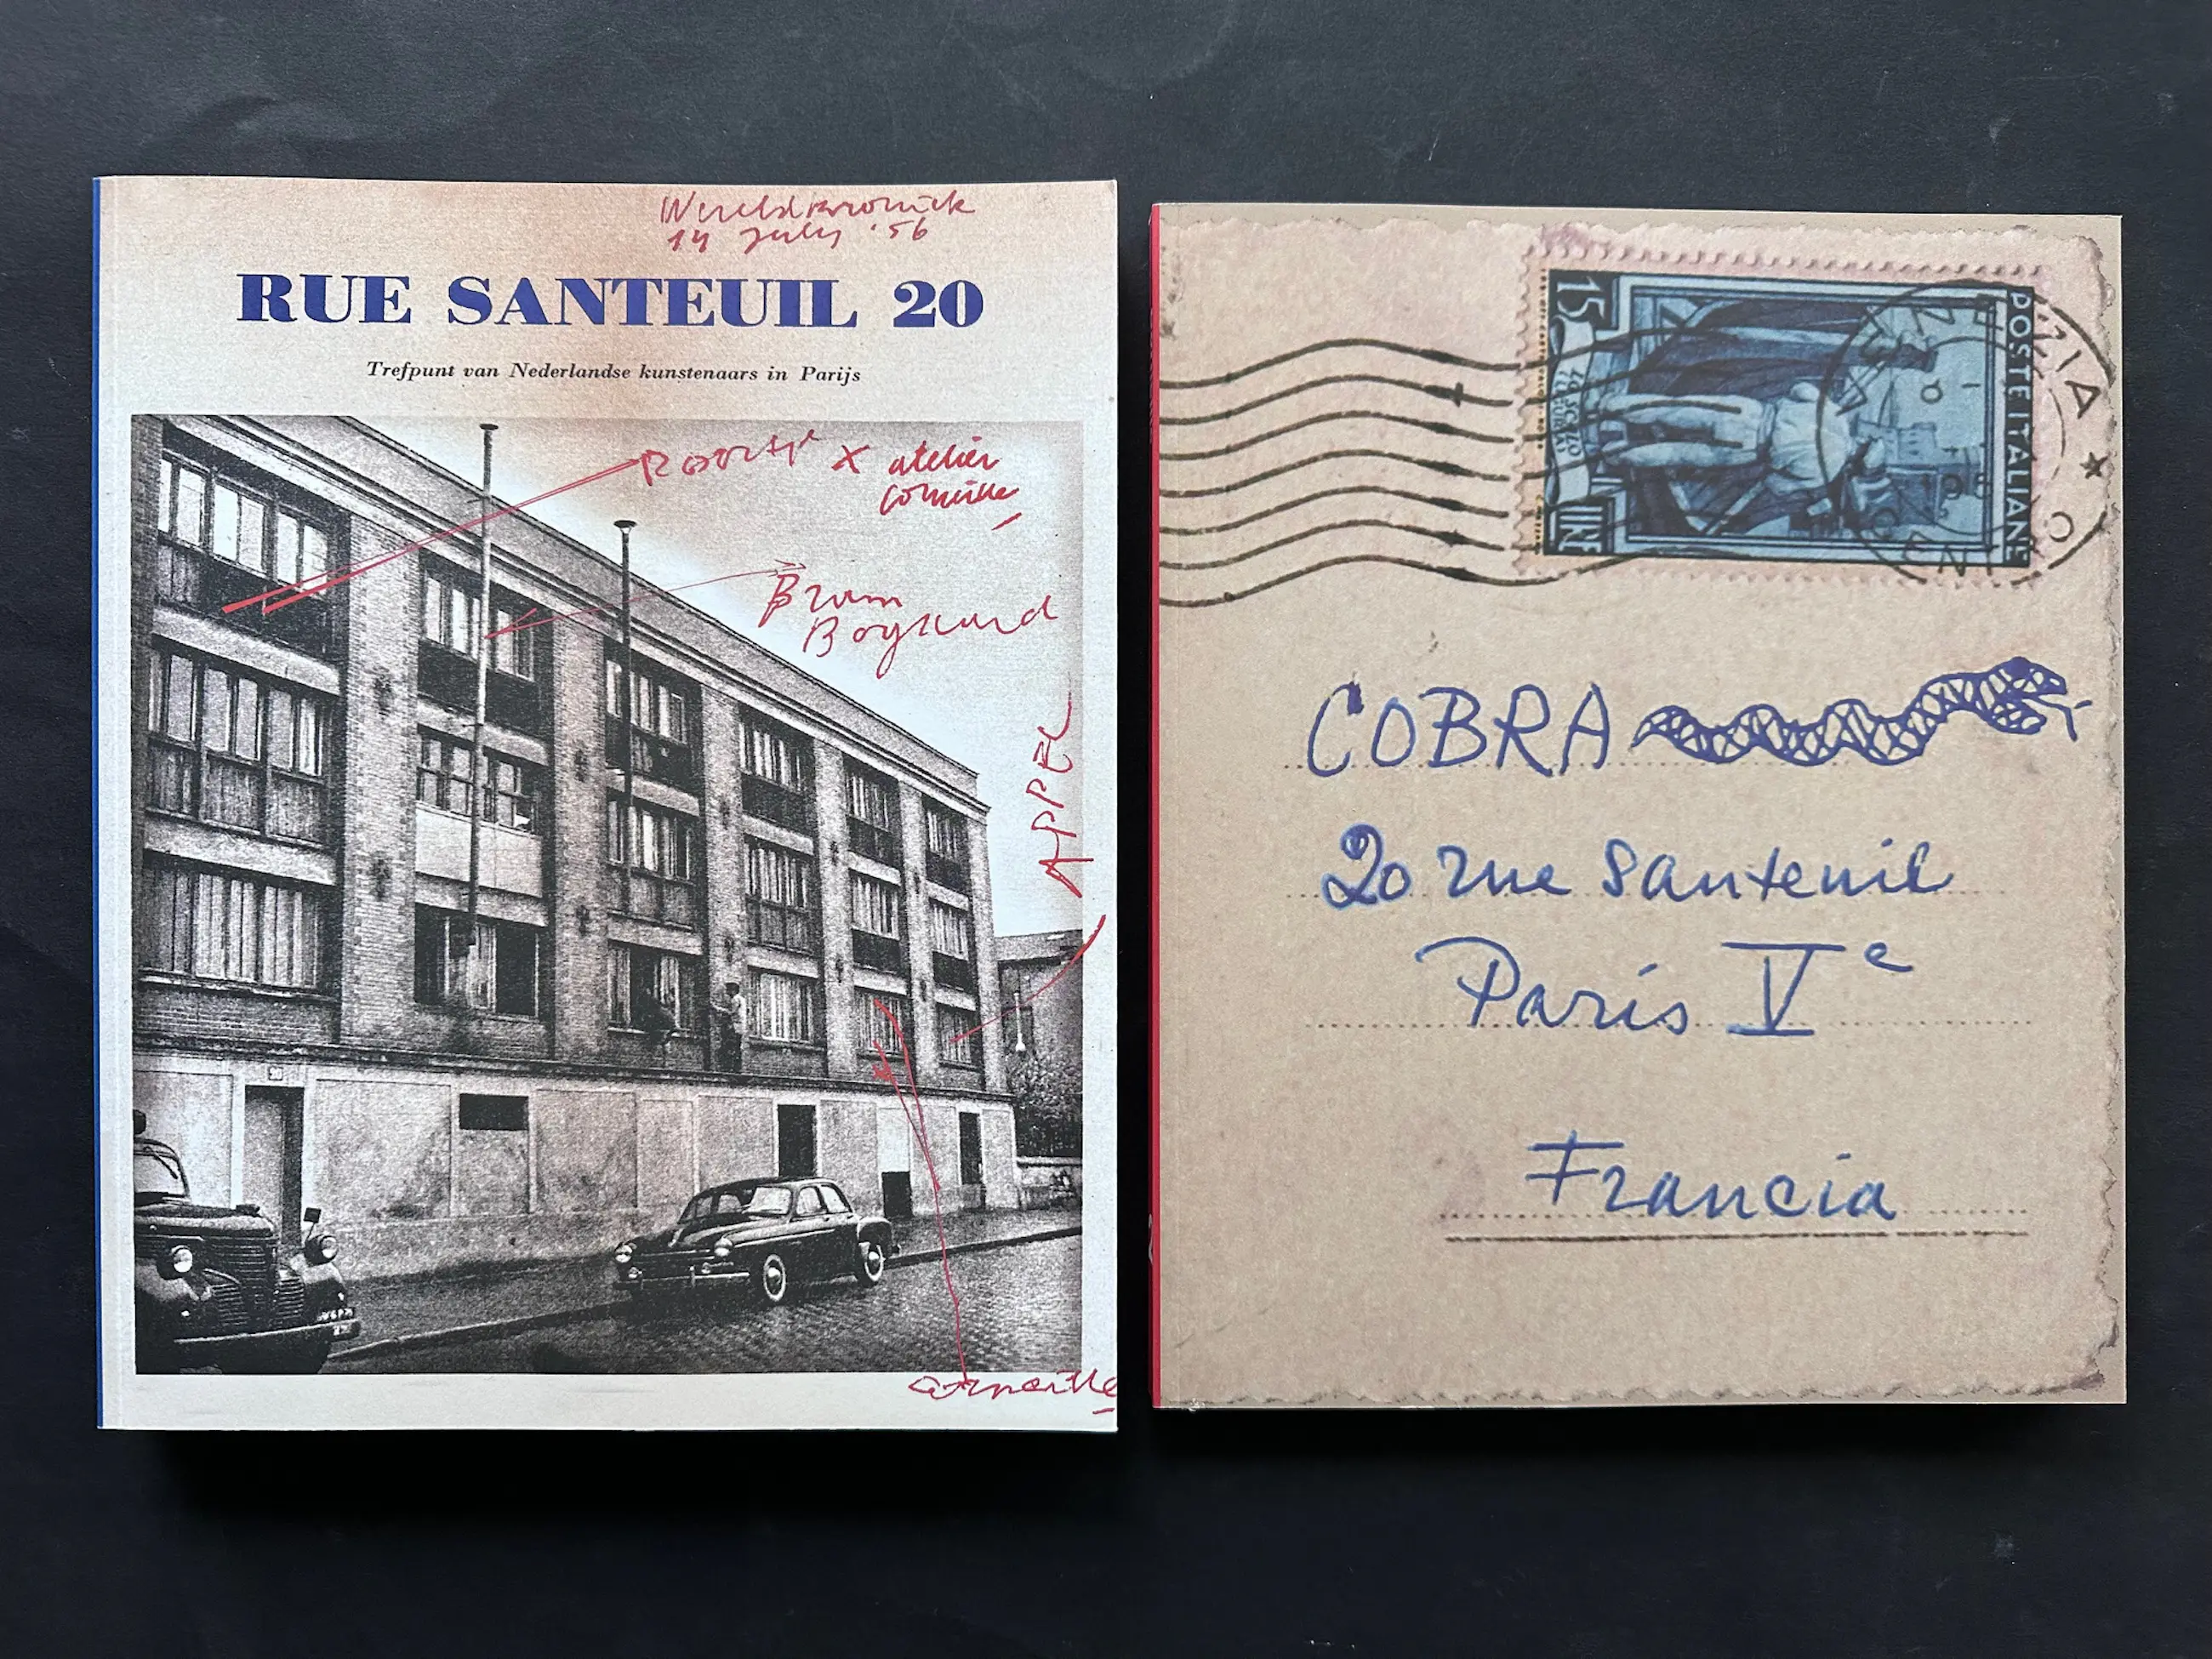 Wereldkroniek
14 July '56
RUE SANTEUIL 20
Trefpunt van Nederlandse kunstenaars in Parijs
X atelier
Corneille
Bram
Bogaard
APPEL
20
Corneille
15
LIRE
POSTE ITALIANE
VENEZIA
COBRA
20 rue Santeuil
Paris Ve
Francia